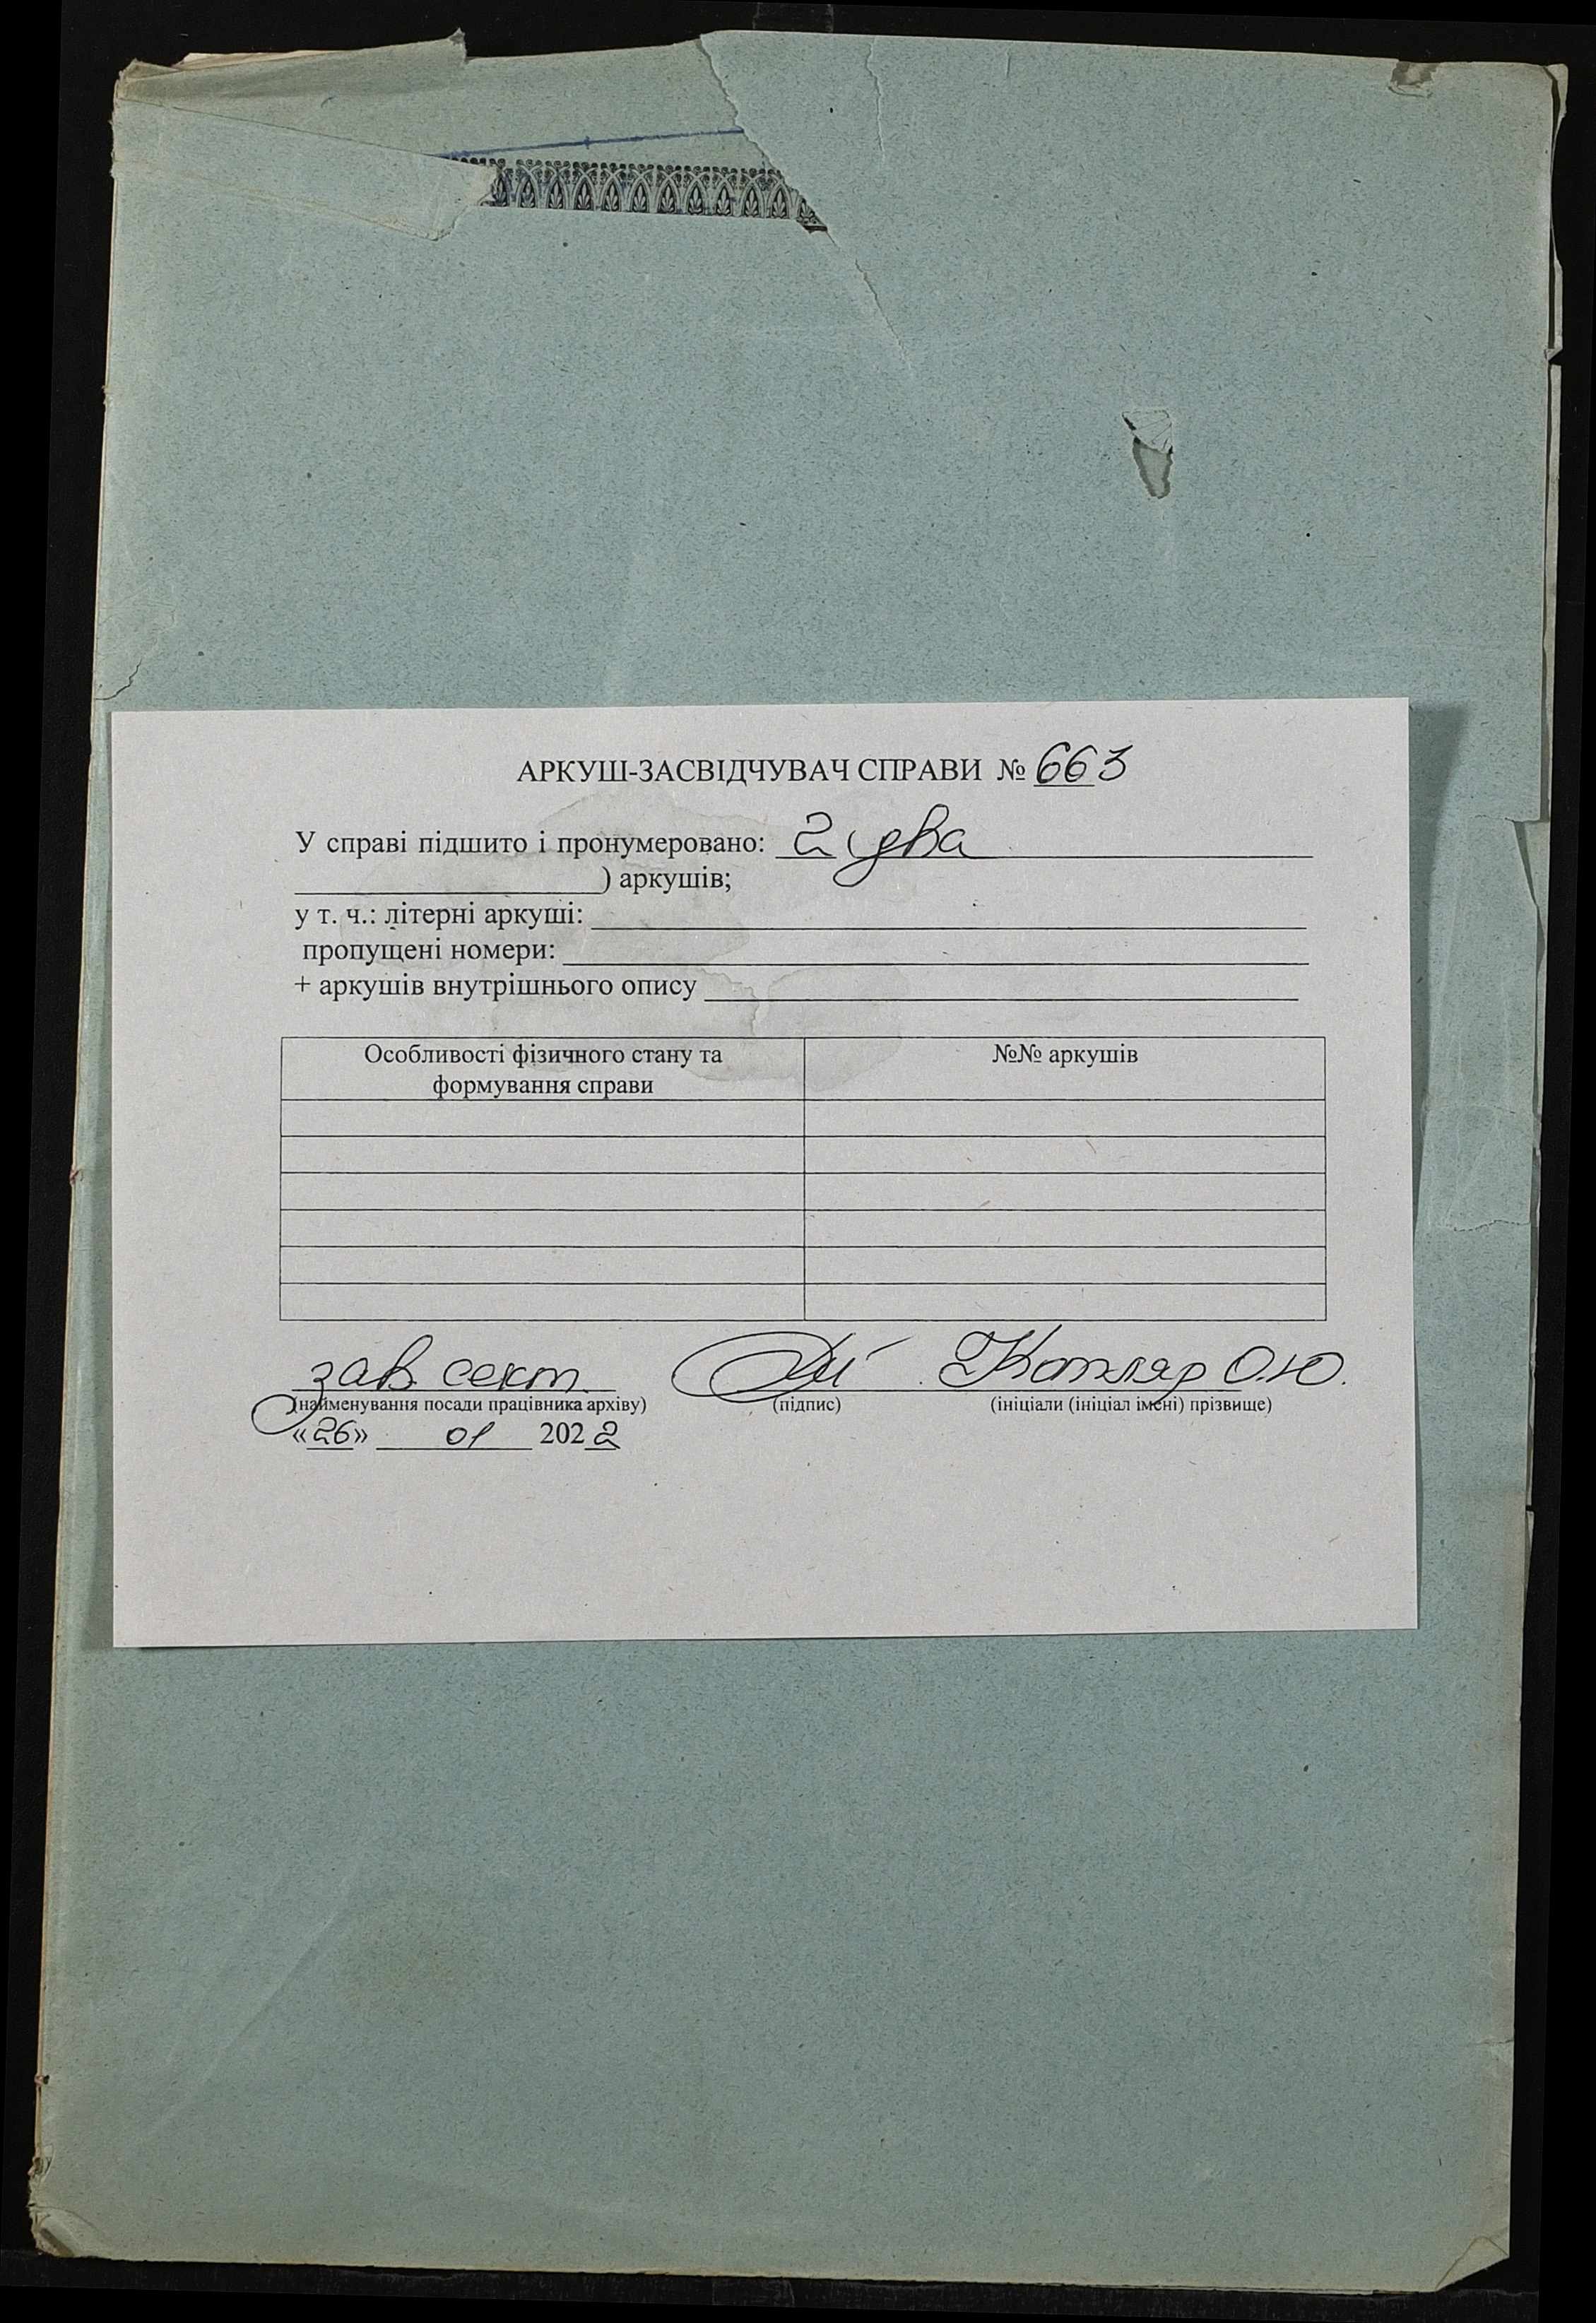 АРКУШ-ЗАСВІДЧУВАЧ СПРАВИ № 663
У справі підшито і пронумеровано: 2 ( два
) аркушів;
у т. ч.: літерні аркуші:
пропущені номери:
+ аркушів внутрішнього опису
Особливості фізичного стану та формування справи №№ аркушів
зав. сект. Котляр О.Ю.
(найменування посади працівника архіву) (підпис) (ініціали (ініціал імені) прізвище)
«26» 01 2022